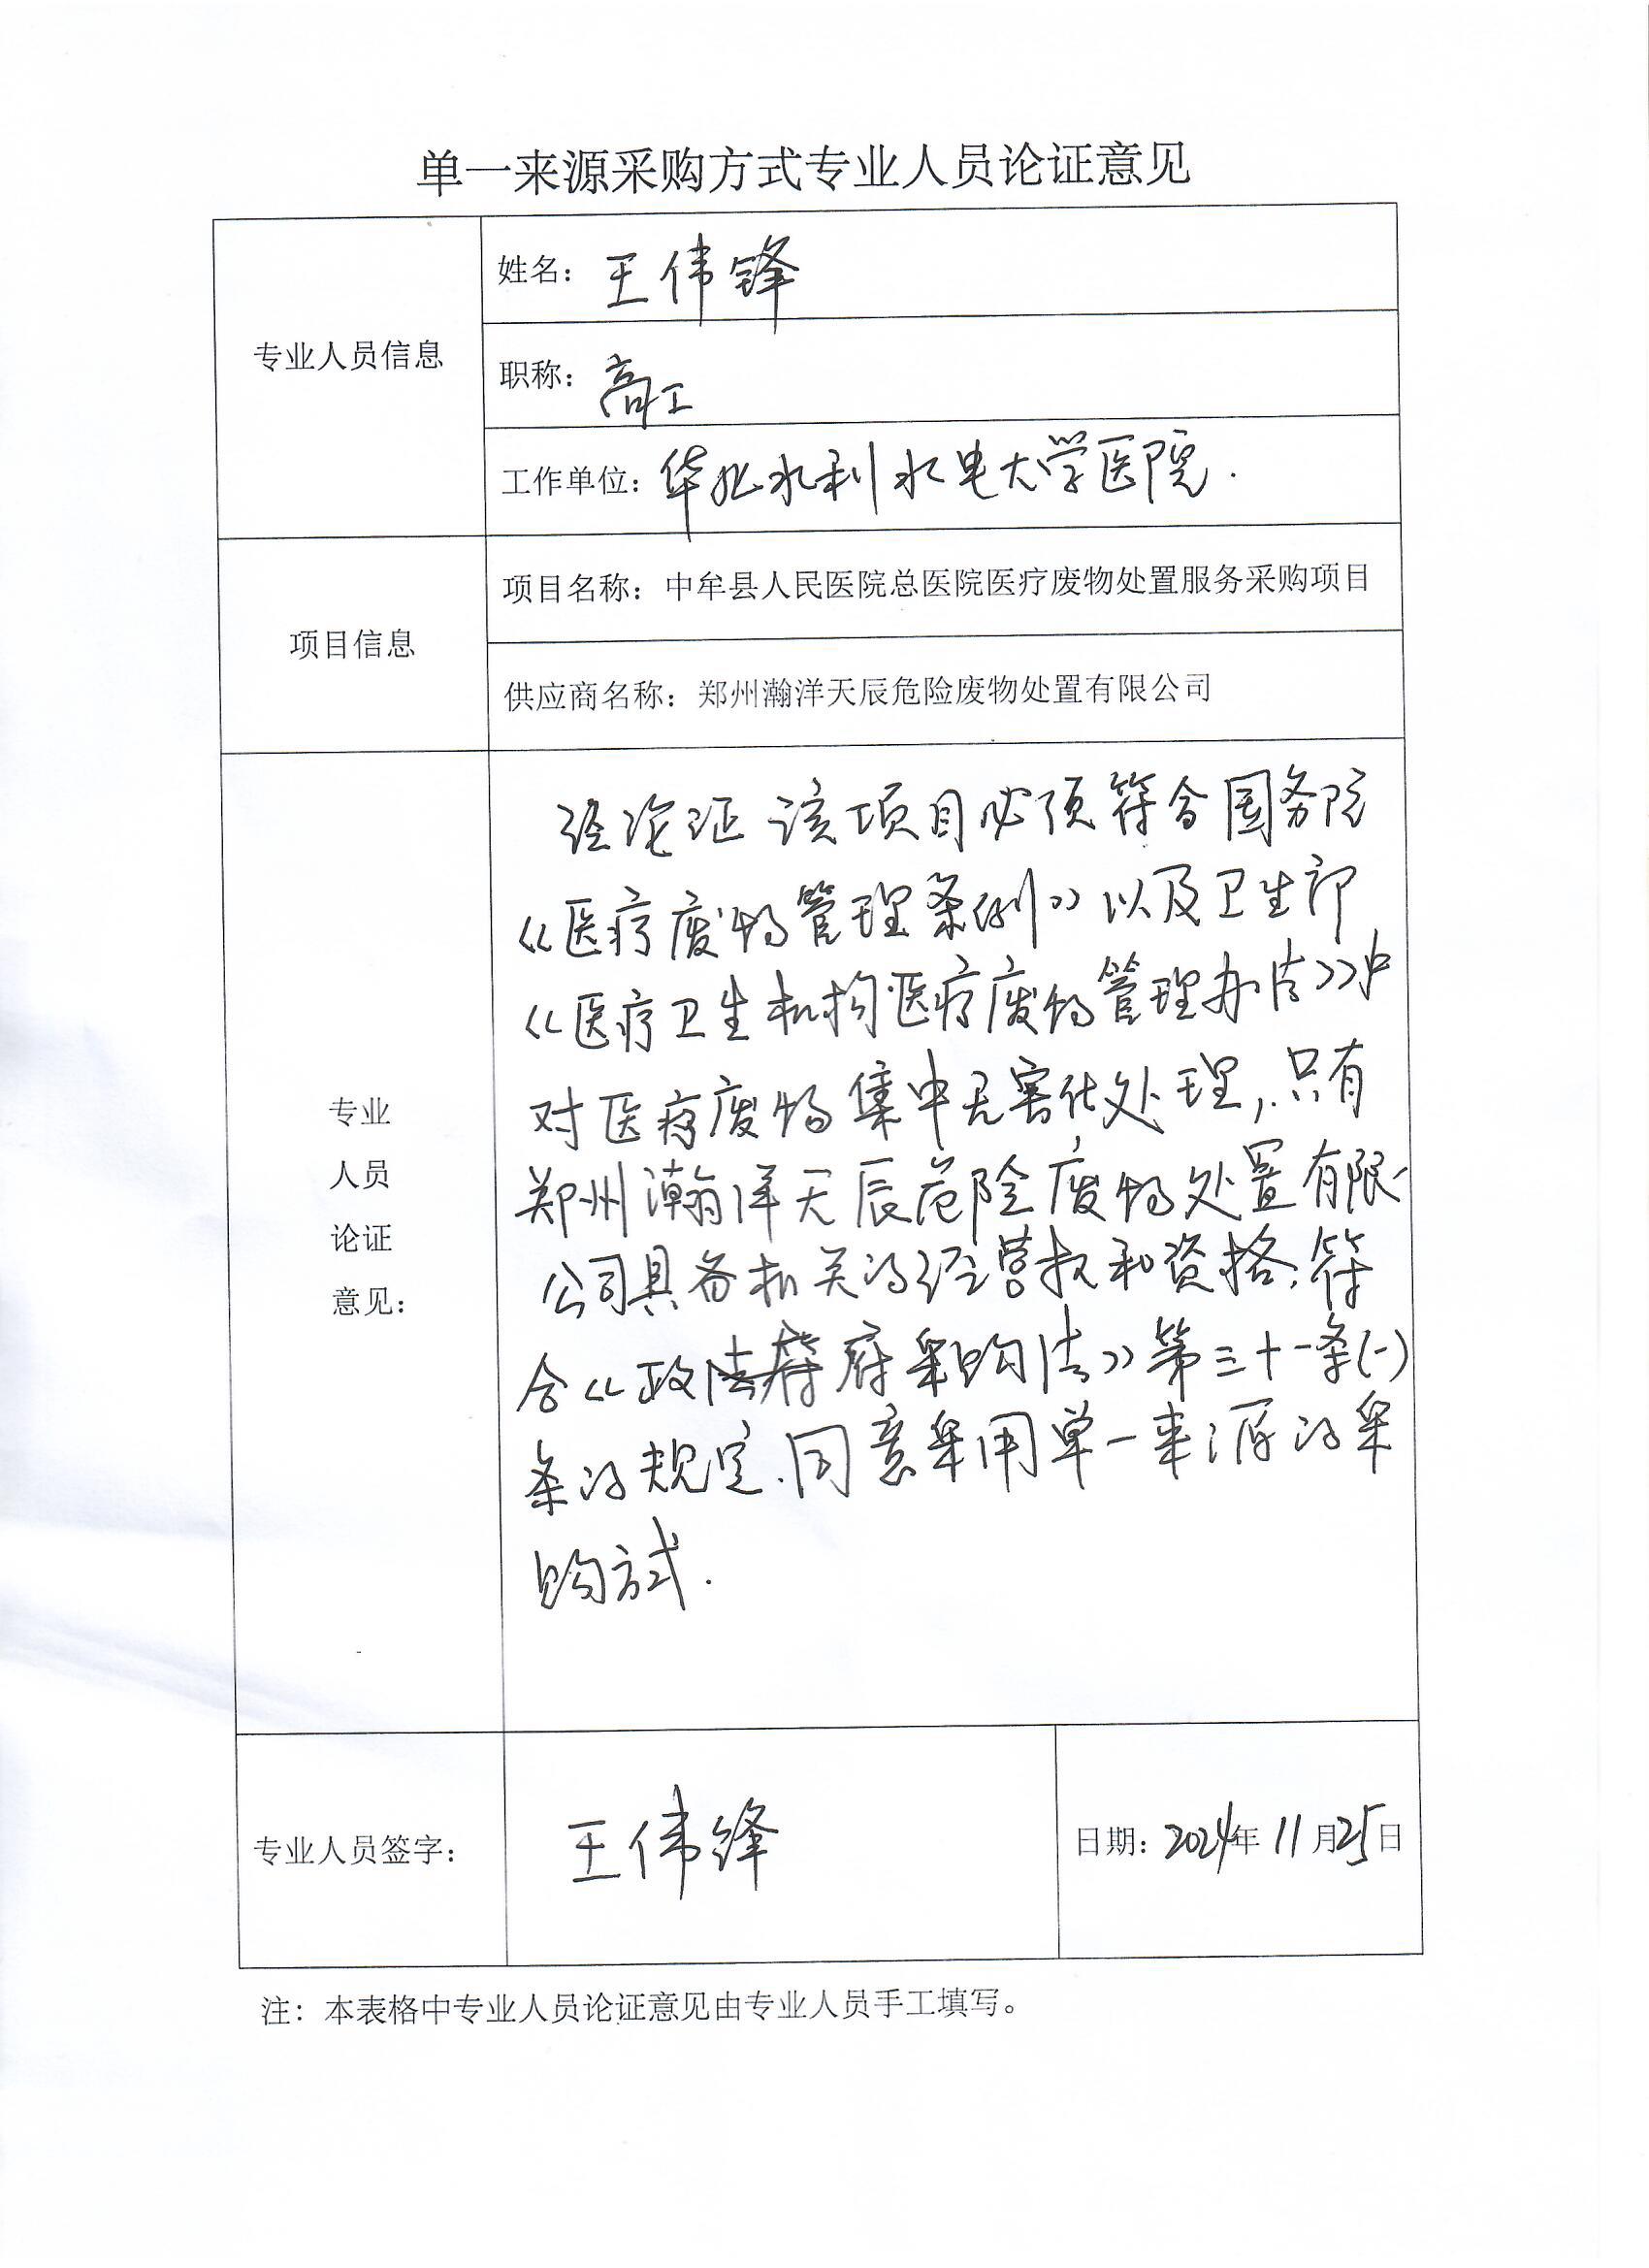 单一来源采购方式专业人员论证意见
专业人员信息
姓名：王伟锋
职称：高工
工作单位：华北水利水电大学医院.
项目信息
项目名称：中牟县人民医院总医院医疗废物处置服务采购项目
供应商名称：郑州瀚洋天辰危险废物处置有限公司
专业
人员
论证
意见：
经论证该项目必须符合国务院
《医疗废物管理条例》以及卫生部
《医疗卫生机构医疗废物管理办法》中
对医疗废物集中无害化处理，只有
郑州瀚洋天辰危险废物处置有限
公司具备相关的经营权和资格，符
合《政府采购法》第三十一条(一)
条的规定.同意采用单一来源的采
购方式.
专业人员签字：
王伟锋
日期：2024年11月25日
注：本表格中专业人员论证意见由专业人员手工填写。